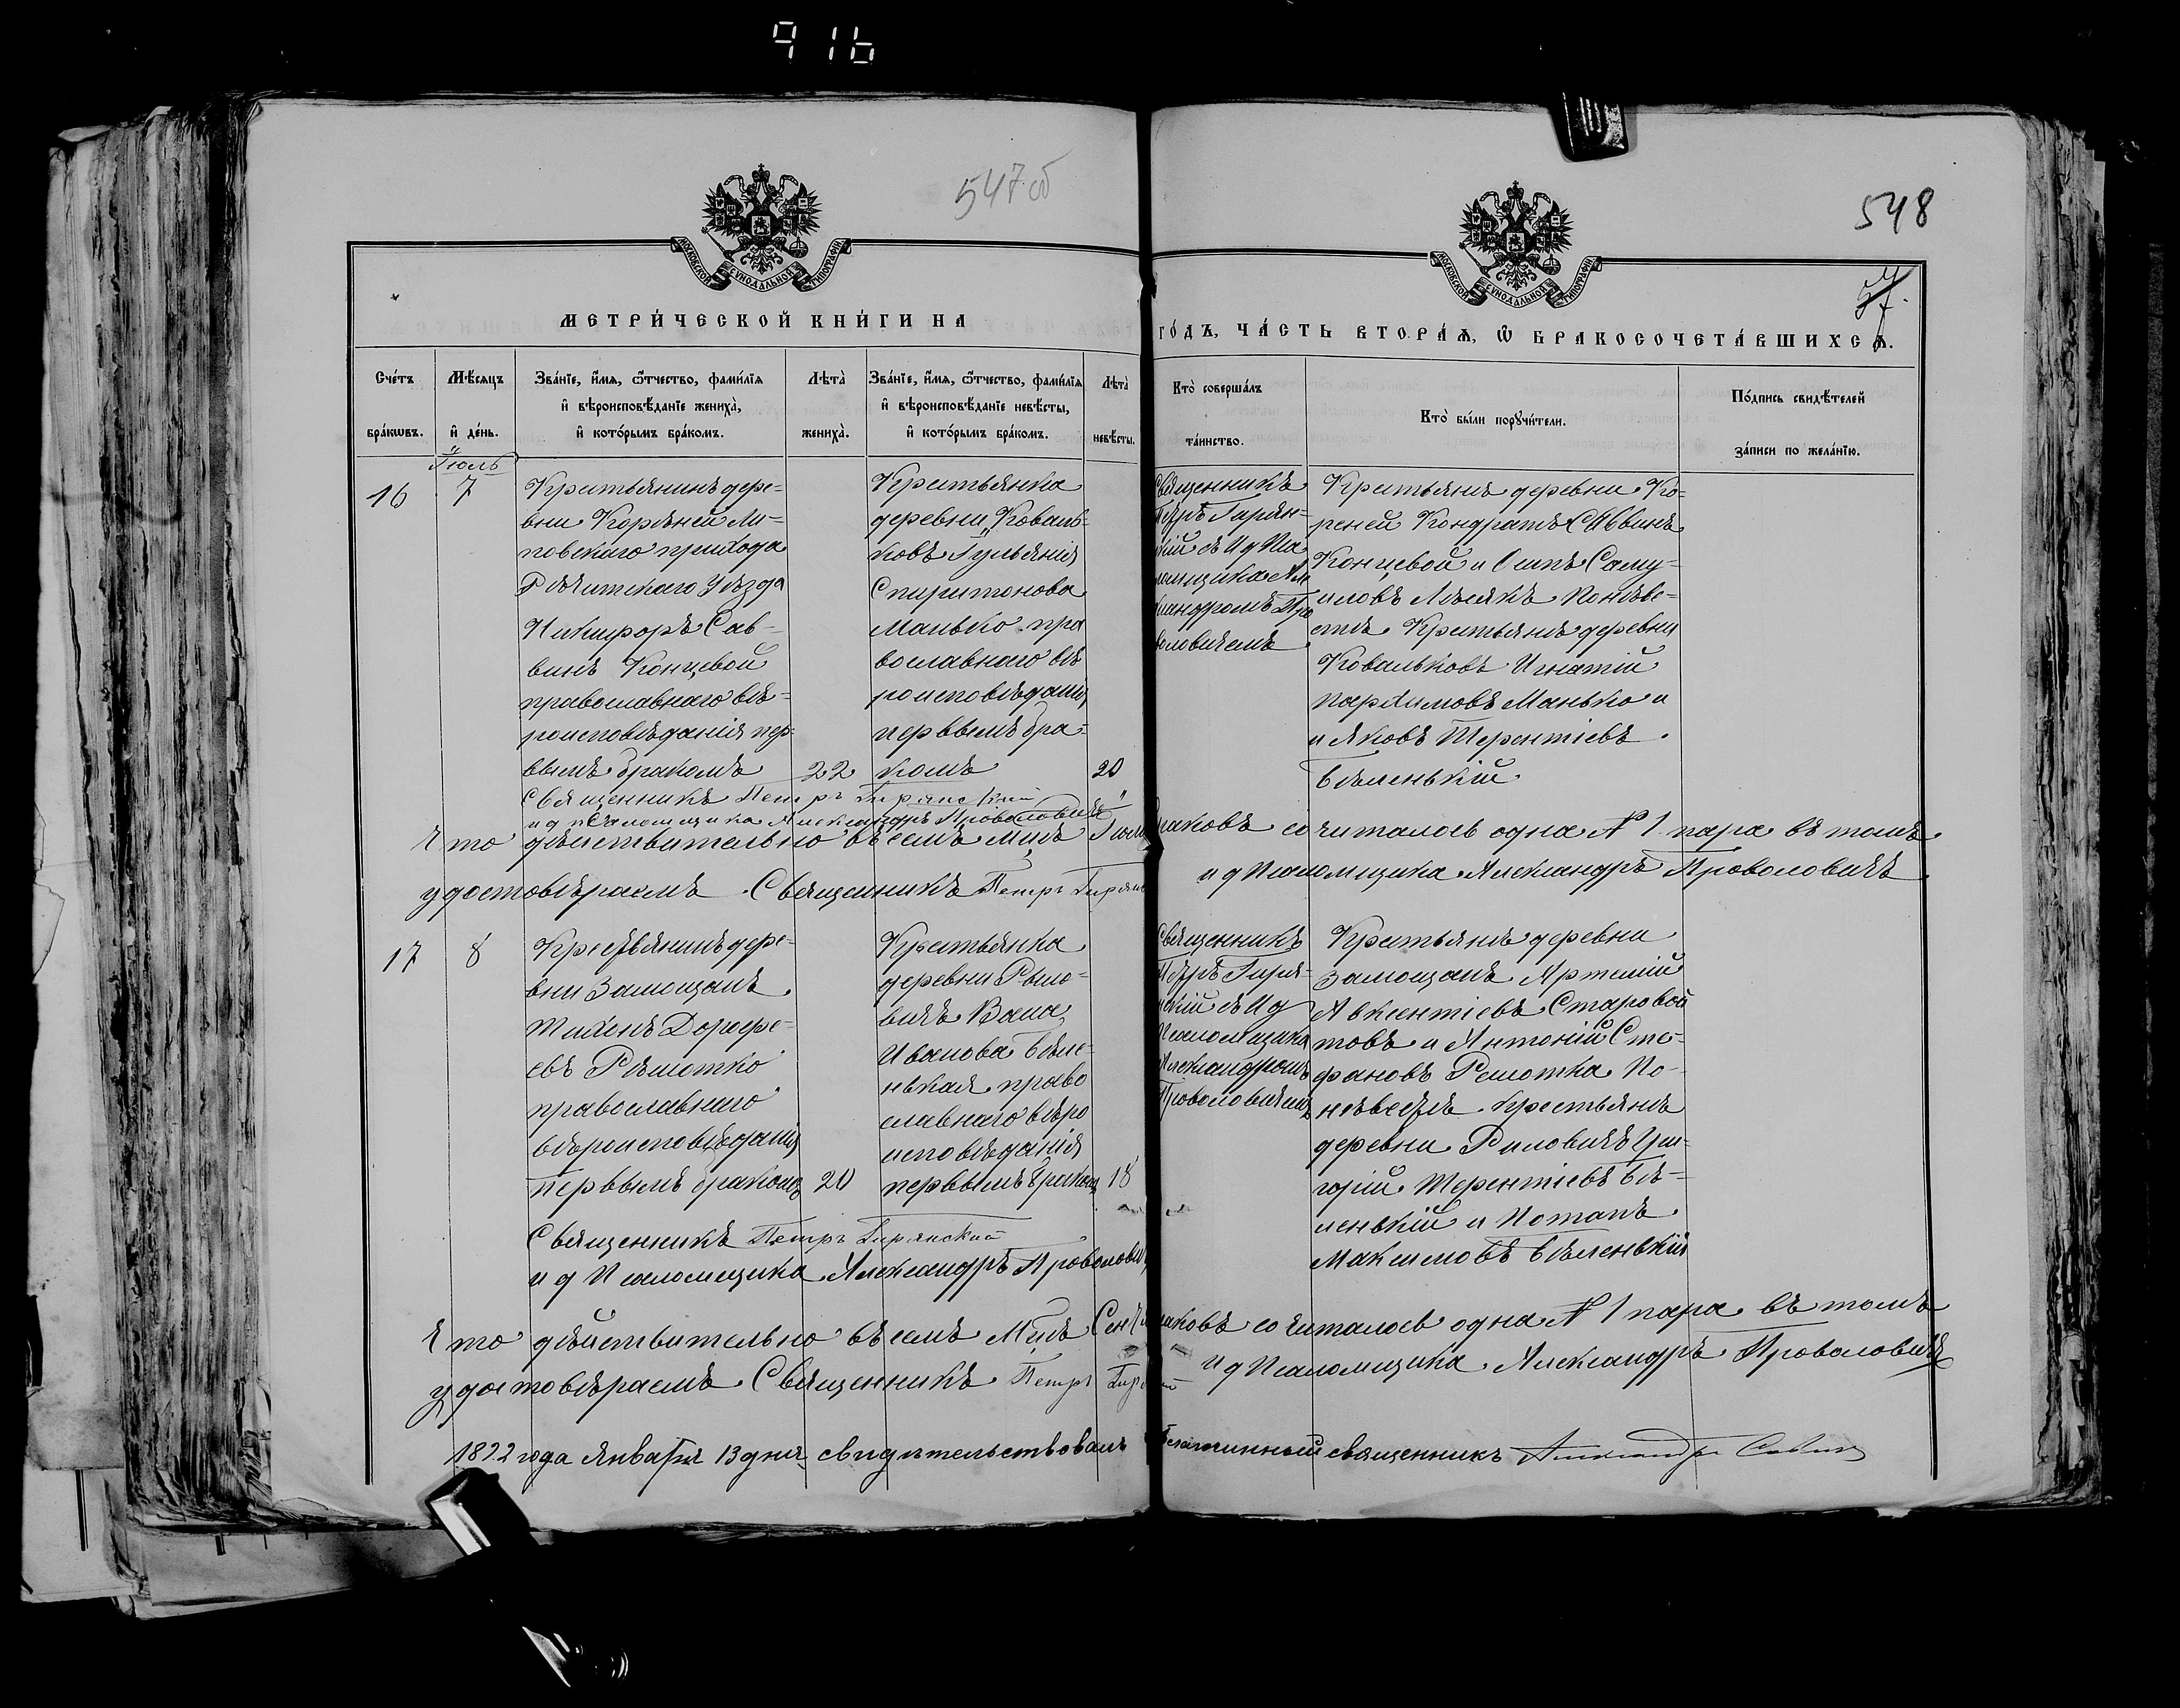 916
547 об
548
57.
МОСКОВСКОЙ СѴНОДАЛЬНОЙ ТИПОГРАФІИ
МОСКОВСКОЙ СѴНОДАЛЬНОЙ ТИПОГРАФІИ
МЕТРИ́ЧЕСКОЙ КНИ́ГИ НА
ГО́ДЪ, ЧА́СТЬ ВТОРА́Ѧ, Ѡ҆ БРАКОСОЧЕТА́ВШИХСѦ.
Сче́тъ бра́кѡвъ.
Мѣ́сѧцъ и҆ де́нь.
Зва́нїе, и҆́мѧ, ѻ҆́тчество, фами́лїѧ
и҆ вѣроисповѣ́данїе жениха̀,
и҆ кото́рымъ бра́комъ.
Лѣта̀ жениха̀.
Зва́нїе, и҆́мѧ, ѻ҆́тчество, фами́лїѧ
и҆ вѣроисповѣ́данїе невѣ́сты,
и҆ кото́рымъ бра́комъ.
Лѣта̀ невѣ́сты.
Кто̀ соверша́лъ
та́инство.
Кто̀ бы́ли порꙋчи́тели.
По́дпись свидѣ́телей
за́писи по жела́нїю.
Іюль
16
7
Крестьянинъ дере-
вни Корѣней Ли-
повскаго прихода
Рѣчитскаго Уѣзда
Никифоръ Сав-
винъ Концевой
православнаго вѣ-
роисповѣданія пер-
вымъ бракомъ
22
Крестьянка
деревни Коваль-
ковъ Гульянія
Спиритонова
Манько пра
вославнаго вѣ
роисповѣданія
первымъ бра-
комъ
20
Священникъ
Петръ Гирян-
скій съ И д Пса
ломщика Але
ксандромъ Про
воловичемъ
Крестьянъ деревни Ко-
реней Кондратъ Саввинъ
Концевой и Осипъ Саму-
иловъ Лѣсякъ По невѣ-
стѣ Крестьянъ деревни
Ковальковъ Игнатій
Пархимовъ Манько и
и Яковъ Терентіевъ
Бѣленькій.
Священникъ Петръ Гирянскій
и д псаломщика Александръ Проволовичъ
Что дѣйствительно въ семъ м-цѣ Іюлѣ браковъ сочиталось одна № 1 пара въ томъ
удостовѣряемъ Священникъ Петръ Гирянс и д Псаломщика Александръ Проволовичъ
17
8
Крестьянинъ дере-
вни Замощанъ
Тихонъ Дорофе-
евъ Рѣшотко
православнаго
вѣроисповѣданія
первымъ бракомъ
20
Крестьянка
деревни Рыло-
вичъ Васа
Иванова Бѣле-
нькая право
славнаго вѣро
исповѣданія
первымъ бракомъ
18
Священникъ
Петръ Гиря-
нскій съ И д
Псаломщика
Александромъ
Проволовичемъ
Крестьянъ деревни
Замощанъ Артемій
Авксентіевъ Старовой
товъ и Антоній Сте-
фановъ Решотка По
невѣстѣ крестьянъ
деревни Риловичъ Гри-
горій Терентіевъ Бѣ-
ленькій и Потапъ
Максимовъ Бѣленькій
Священникъ Петръ Гирянскій
и д Псаломщика Александръ Проволовичъ
Что дѣйствительно въ семъ М-цѣ Сентя браковъ сочиталось одна № 1 пара въ томъ
удостовѣряемъ Священникъ Петръ Гирянскій и д Псаломщика Александръ Проволовичъ
1892 года Января 13 дня свидѣтельствовалъ Благочинный священникъ Александръ